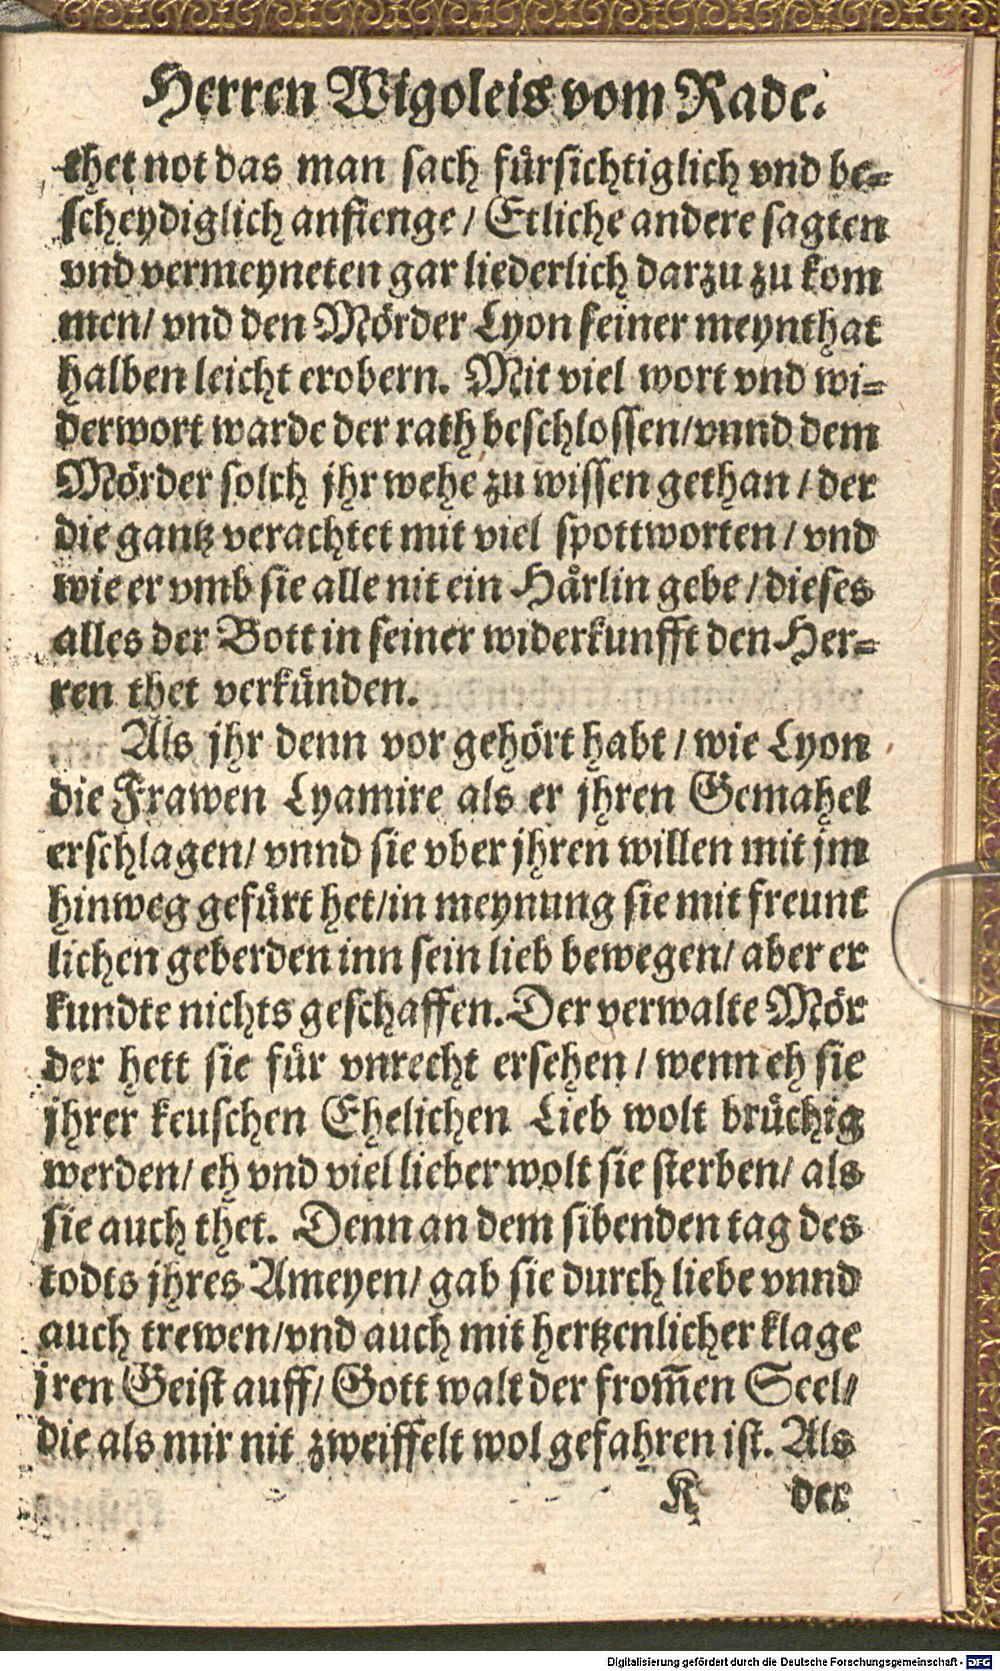 Herren Wigoleis vom Rade.
thet not das man sach fuͤrsichtiglich vnd be-
scheydiglich anfienge / Etliche andere sagten
vnd vermeyneten gar liederlich darzu zu kom
men / vnd den Moͤrder Lyon seiner meynthat
halben leicht erobern. Mit viel wort vnd wi-
derwort warde der rath beschlossen / vnnd dem
Moͤrder solch jhr wehe zu wissen gethan / der
die gantz verachtet mit viel spottworten / vnd
wie er vmb sie alle nit ein Haͤrlin gebe / dieses
alles der Bott in seiner widerkunfft den Her-
ren thet verkuͤnden.
Als jhr denn vor gehoͤrt habt / wie Lyon
die Frawen Lyamire als er jhren Gemahel
erschlagen / vnnd sie vber jhren willen mit jm
hinweg gefuͤrt het / in meynung sie mit freunt
lichen geberden inn sein lieb bewegen / aber er
kundte nichts geschaffen. Der verwalte Moͤr
der hett sie fuͤr vnrecht ersehen / wenn eh sie
jhrer keuschen Ehelichen Lieb wolt bruͤchig
werden / eh vnd viel lieber wolt sie sterben / als
sie auch thet. Denn an dem sibenden tag des
todts jhres Ameyen / gab sie durch liebe vnnd
auch trewen / vnd auch mit hertzenlicher klage
jren Geist auff / Gott walt der from̄en Seel /
die als mir nit zweiffelt wol gefahren ist. Als
K der
Digitalisierung gefördert durch die Deutsche Forschungsgemeinschaft - DFG